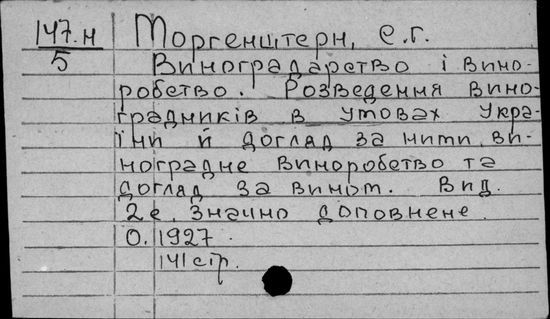 147.н
5
Моргенштерн, Є.Г.
Виноградарство і вино-
робство. Розведення вино-
градників в умовах Укра-
їни й догляд за ними, ви-
ноградне виноробство та
догляд за вином. Вид.
2е. Значно доповнене.
О. 1927.
141 стр.